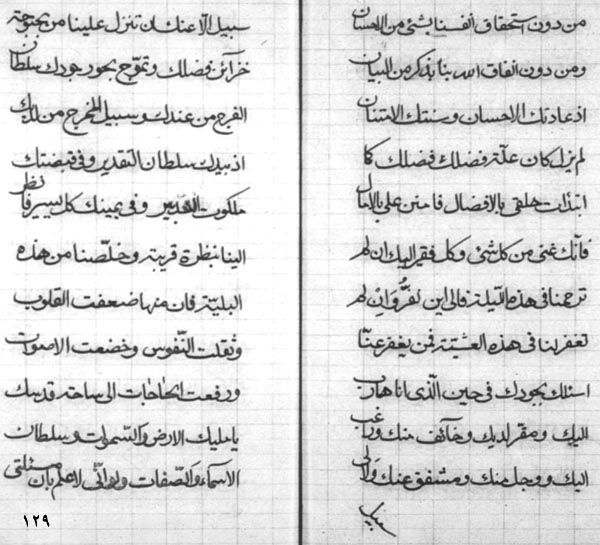 من دون استحقاق انفسنا بشئ من الاحسان
ومن دون انفاق الله بنا بذكر من البيان
اذ عادتك الاحسان وسنتك الامتنان
لم يزل كان علّة فضلك فضلك كما
ابتدات خلقى بالافضال فامنن على بالامال
فانّك غنى من كل شئ وكل فقير اليك ان لم
ترحمنا فى هذه الليلة فالى اين نفرُّ وان لم
تغفر لنا فى هذه العشيّة فمن يغفر عنّا
اسئلك بجودك فى حين الّذى انا هارب
اليك ومقر لديك وخآئف منك وراغب
اليك ووجل منك ومشفق عنك والى
سبيل
سبيل الّا عنك ان تنزل علينا من بحبوحة
خزآئن فضلك وتموّج بحور جودك سلطان
الفرج من عندك وسبيل المخرج من لديك
اذ بيدك سلطان التقدير وفى قبضتك
ملكوت التدبير وفى يمينك كل يسير فانظر
الينا بنظرة قريبة وخلّصنا من هذه
البليّة فان منها ضعفت القلوب
وثقلت النّفوس وخضعت الاصوات
ورفعت الحاجات الى ساحة قدسك
يا مليك الارض والسّموات وسلطان
الاسمآء والصّفات وانّى لاعلم بان مسئلتى
١٢٩